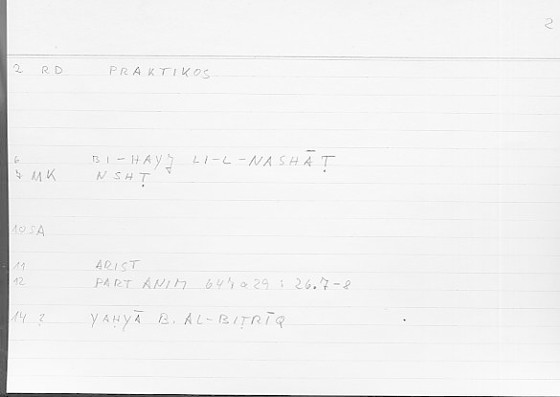 2
2 RD PRAKTIKOS
6 LI-L-NASHĀṬ
7 MK NSHṬ
10 SA
11 ARIST
12 PART ANIM 641a29 : 26.7-8
14 ? YAḤYĀ B. AL-BIṬRĪQ